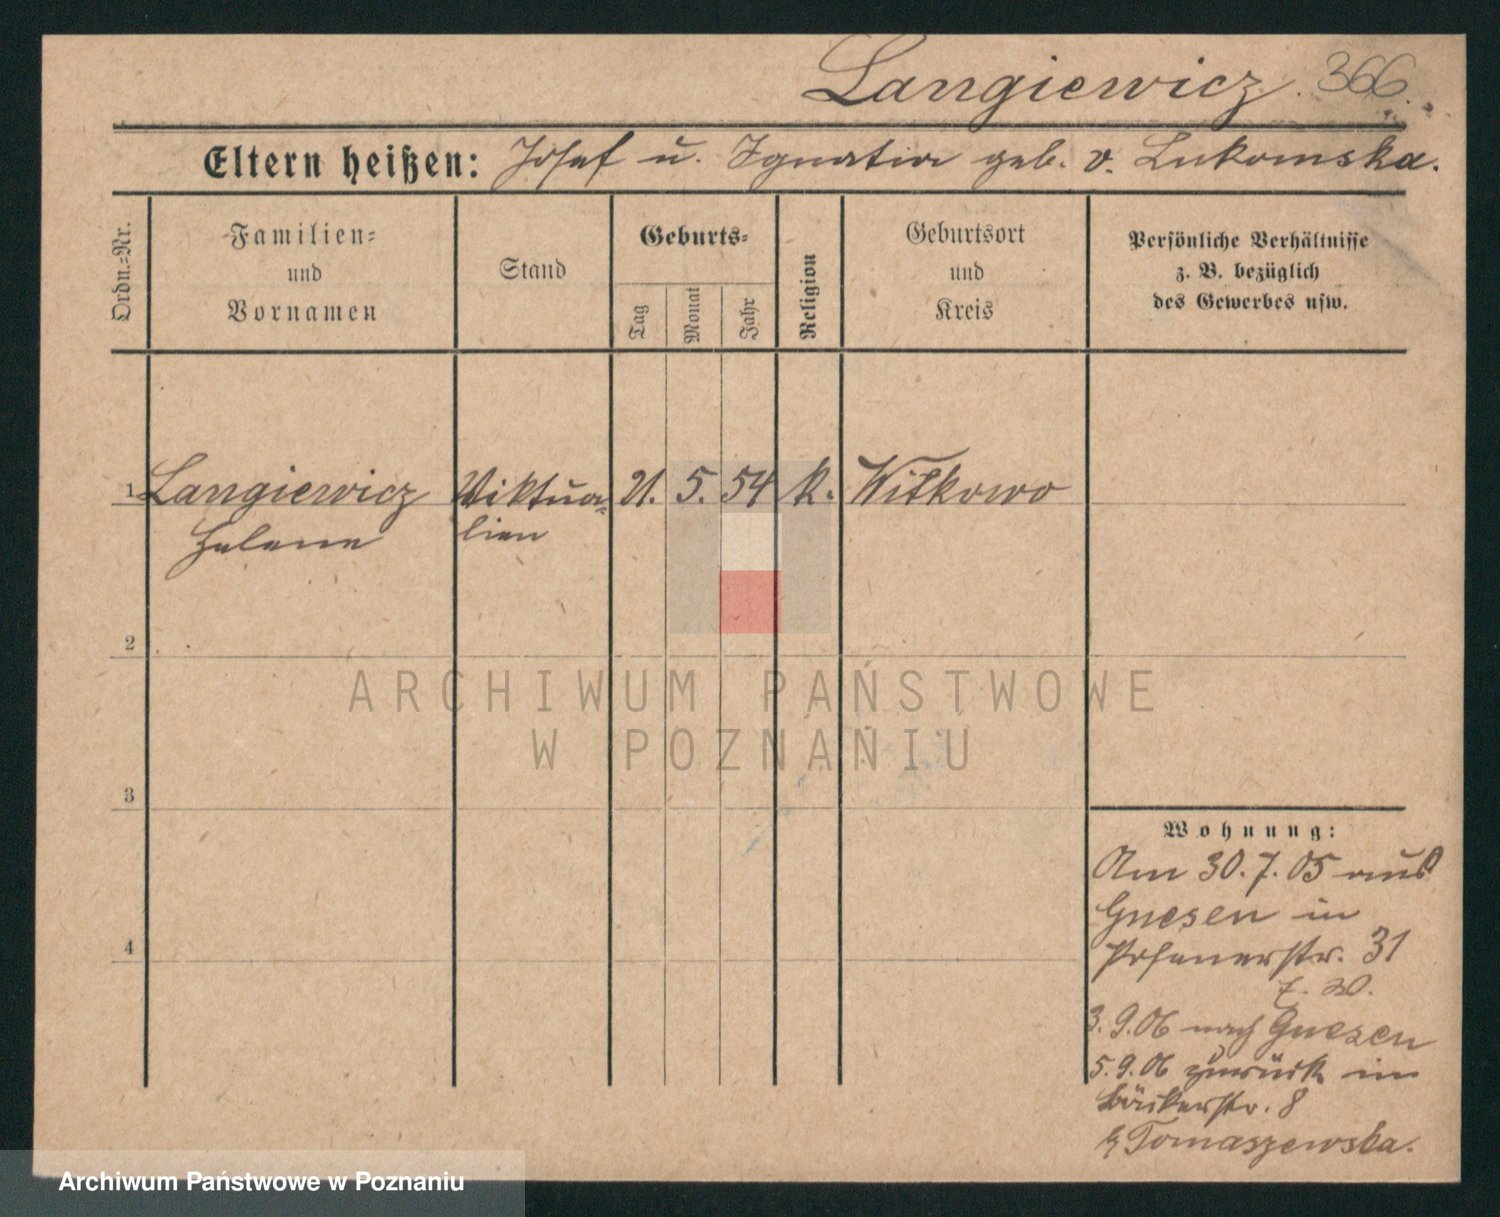 Langiewicz. 366.
Eltern heißen: Josef u. Ignatia geb. v. Lukomska.
Ordn.-Nr.
Familien-
und
Vornamen
Stand
Geburts-
Tag
Monat
Jahr
Religion
Geburtsort
und
Kreis
Persönliche Verhältnisse
z. B. bezüglich
des Gewerbes usw.
1 Langiewicz Viktua- 21. 5. 54 k. Witkowo
Helene lien
2
3
4
ARCHIWUM PAŃSTWOWE
W POZNANIU
Wohnung:
Am 30.7.05 aus
Gnesen in
Posenerstr. 31
3.9.06 nach Gnesen
5.9.06 zurück in
Bäckerstr. 8
Tomaszewska.
Archiwum Państwowe w Poznaniu